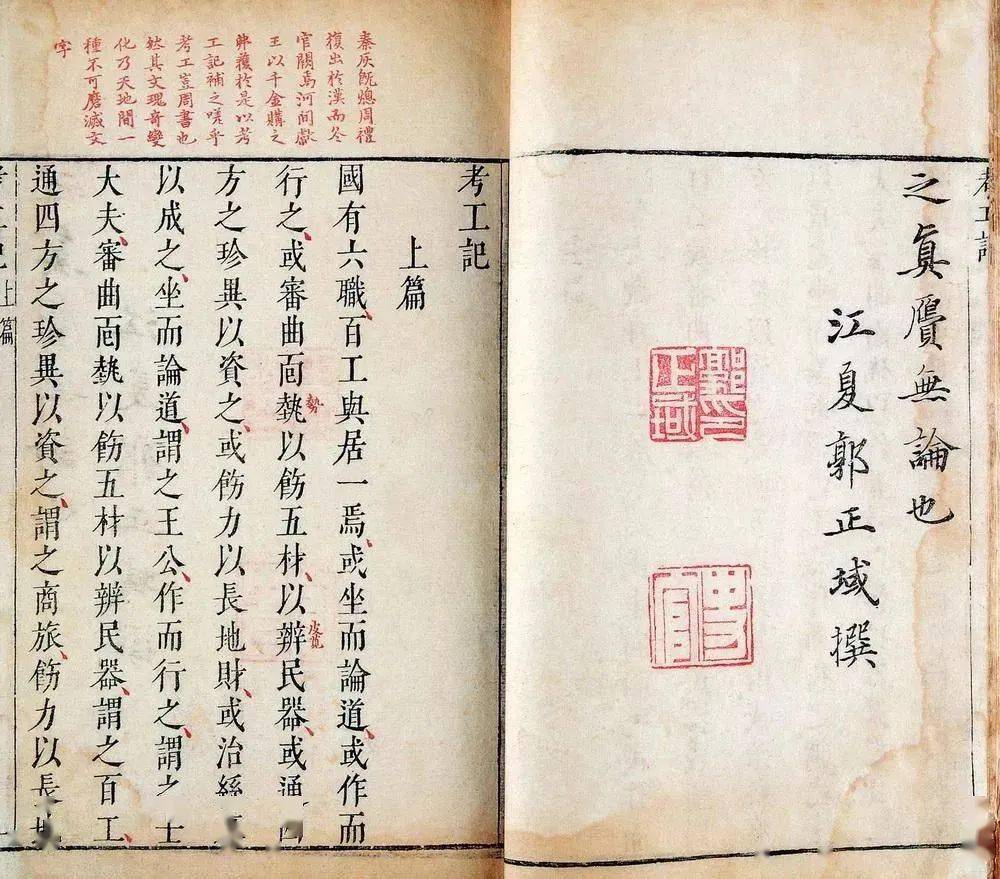 考工記
之眞贗無論也
江夏郭正域撰
秦灰旣熄周禮
復出於漢而冬
官闕焉河間獻
王以千金購之
弗獲於是以考
工記補之嗟乎
考工豈周書也
然其文瑰奇變
化乃天地間一
種不可磨滅文
字
考工記
上篇
國有六職、百工與居一焉、或坐而論道、或作而
行之、或審曲面埶以飭五材、以辨民器、或通四
勢
方之珍異以資之、或飭力以長地財、或治絲
以成之、坐而論道、謂之王公、作而行之、謂之士
大夫、審曲面埶以飭五材以辨民器、謂之百工、
通四方之珍異以資之、謂之商旅、飭力以長地
考工記 上篇